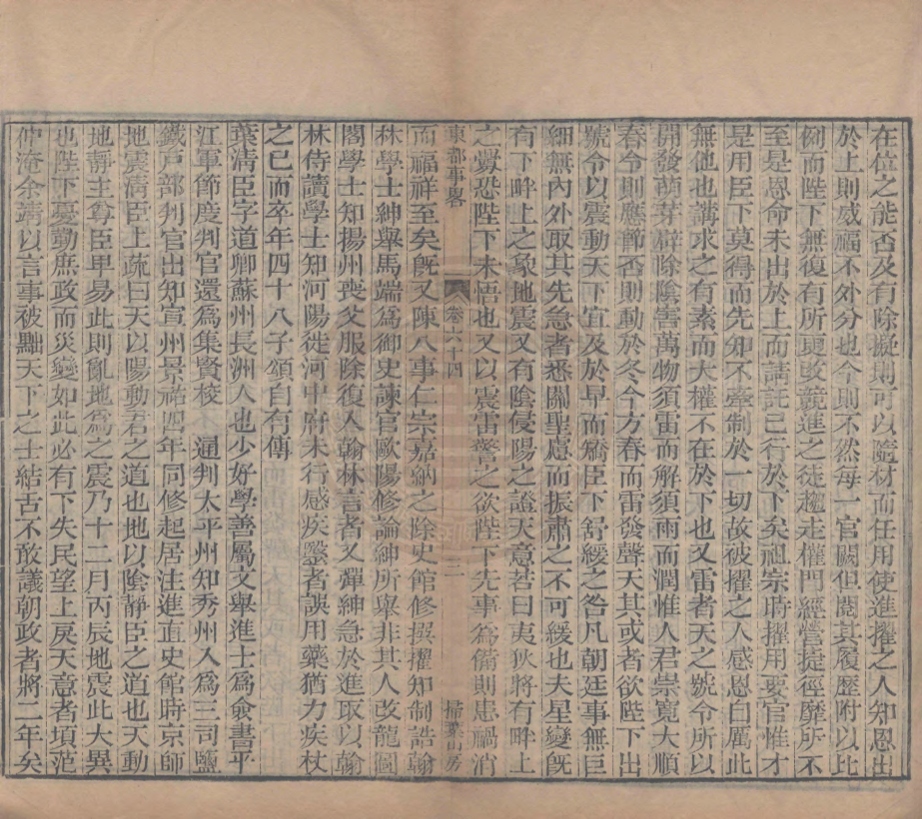 在位之能否及有除擬則可以隨材而任用使進擢之人知恩出
於上則威福不外分也今則不然每一官闕但閱其履歷附以比
例而陛下無復有所更改競進之徒趨走權門經營捷徑靡所不
至是恩命未出於上而請託已行於下矣祖宗時擢用要官惟才
是用臣下莫得而先知不牽制於一切故被擢之人感恩自厲此
無他也講求之有素而大權不在於下也又雷者天之號令所以
開發萌芽辟除陰害萬物須雷而解須雨而潤惟人君崇寬大順
春令則應節否則動於冬今方春而雷發聲天其或者欲陛下出
號令以震動天下宜及於早而矯臣下舒緩之咎凡朝廷事無巨
細無內外取其先急者悉關聖慮而振肅之不可緩也夫星變旣
有下畔上之象地震又有陰侵陽之證天意若曰夷狄將有畔上
之釁恐陛下未悟也又以震雷警之欲陛下先事爲備則患禍消
東都事畧
卷六十四
三
掃葉山房
而福祥至矣旣又陳八事仁宗嘉納之除史館修撰擢知制誥翰
林學士紳舉馬端爲御史諫官歐陽修論紳所舉非其人改龍圖
閣學士知揚州喪父服除復入翰林言者又彈紳急於進取以翰
林侍讀學士知河陽徙河中府未行感疾醫者誤用藥猶力疾杖
之已而卒年四十八子頌自有傳
葉清臣字道卿蘇州長洲人也少好學善屬文舉進士爲僉書平
江軍節度判官還爲集賢校　通判太平州知秀州入爲三司鹽
鐵戶部判官出知宣州景祐四年同修起居注進直史館時京師
地震淸臣上疏曰天以陽動君之道也地以陰靜臣之道也天動
地靜主尊臣卑易此則亂地爲之震乃十二月丙辰地震此大異
也陛下憂勤庶政而災變如此必有下失民望上戾天意者項范
仲淹余靖以言事被黜天下之士結舌不敢議朝政者將二年矣